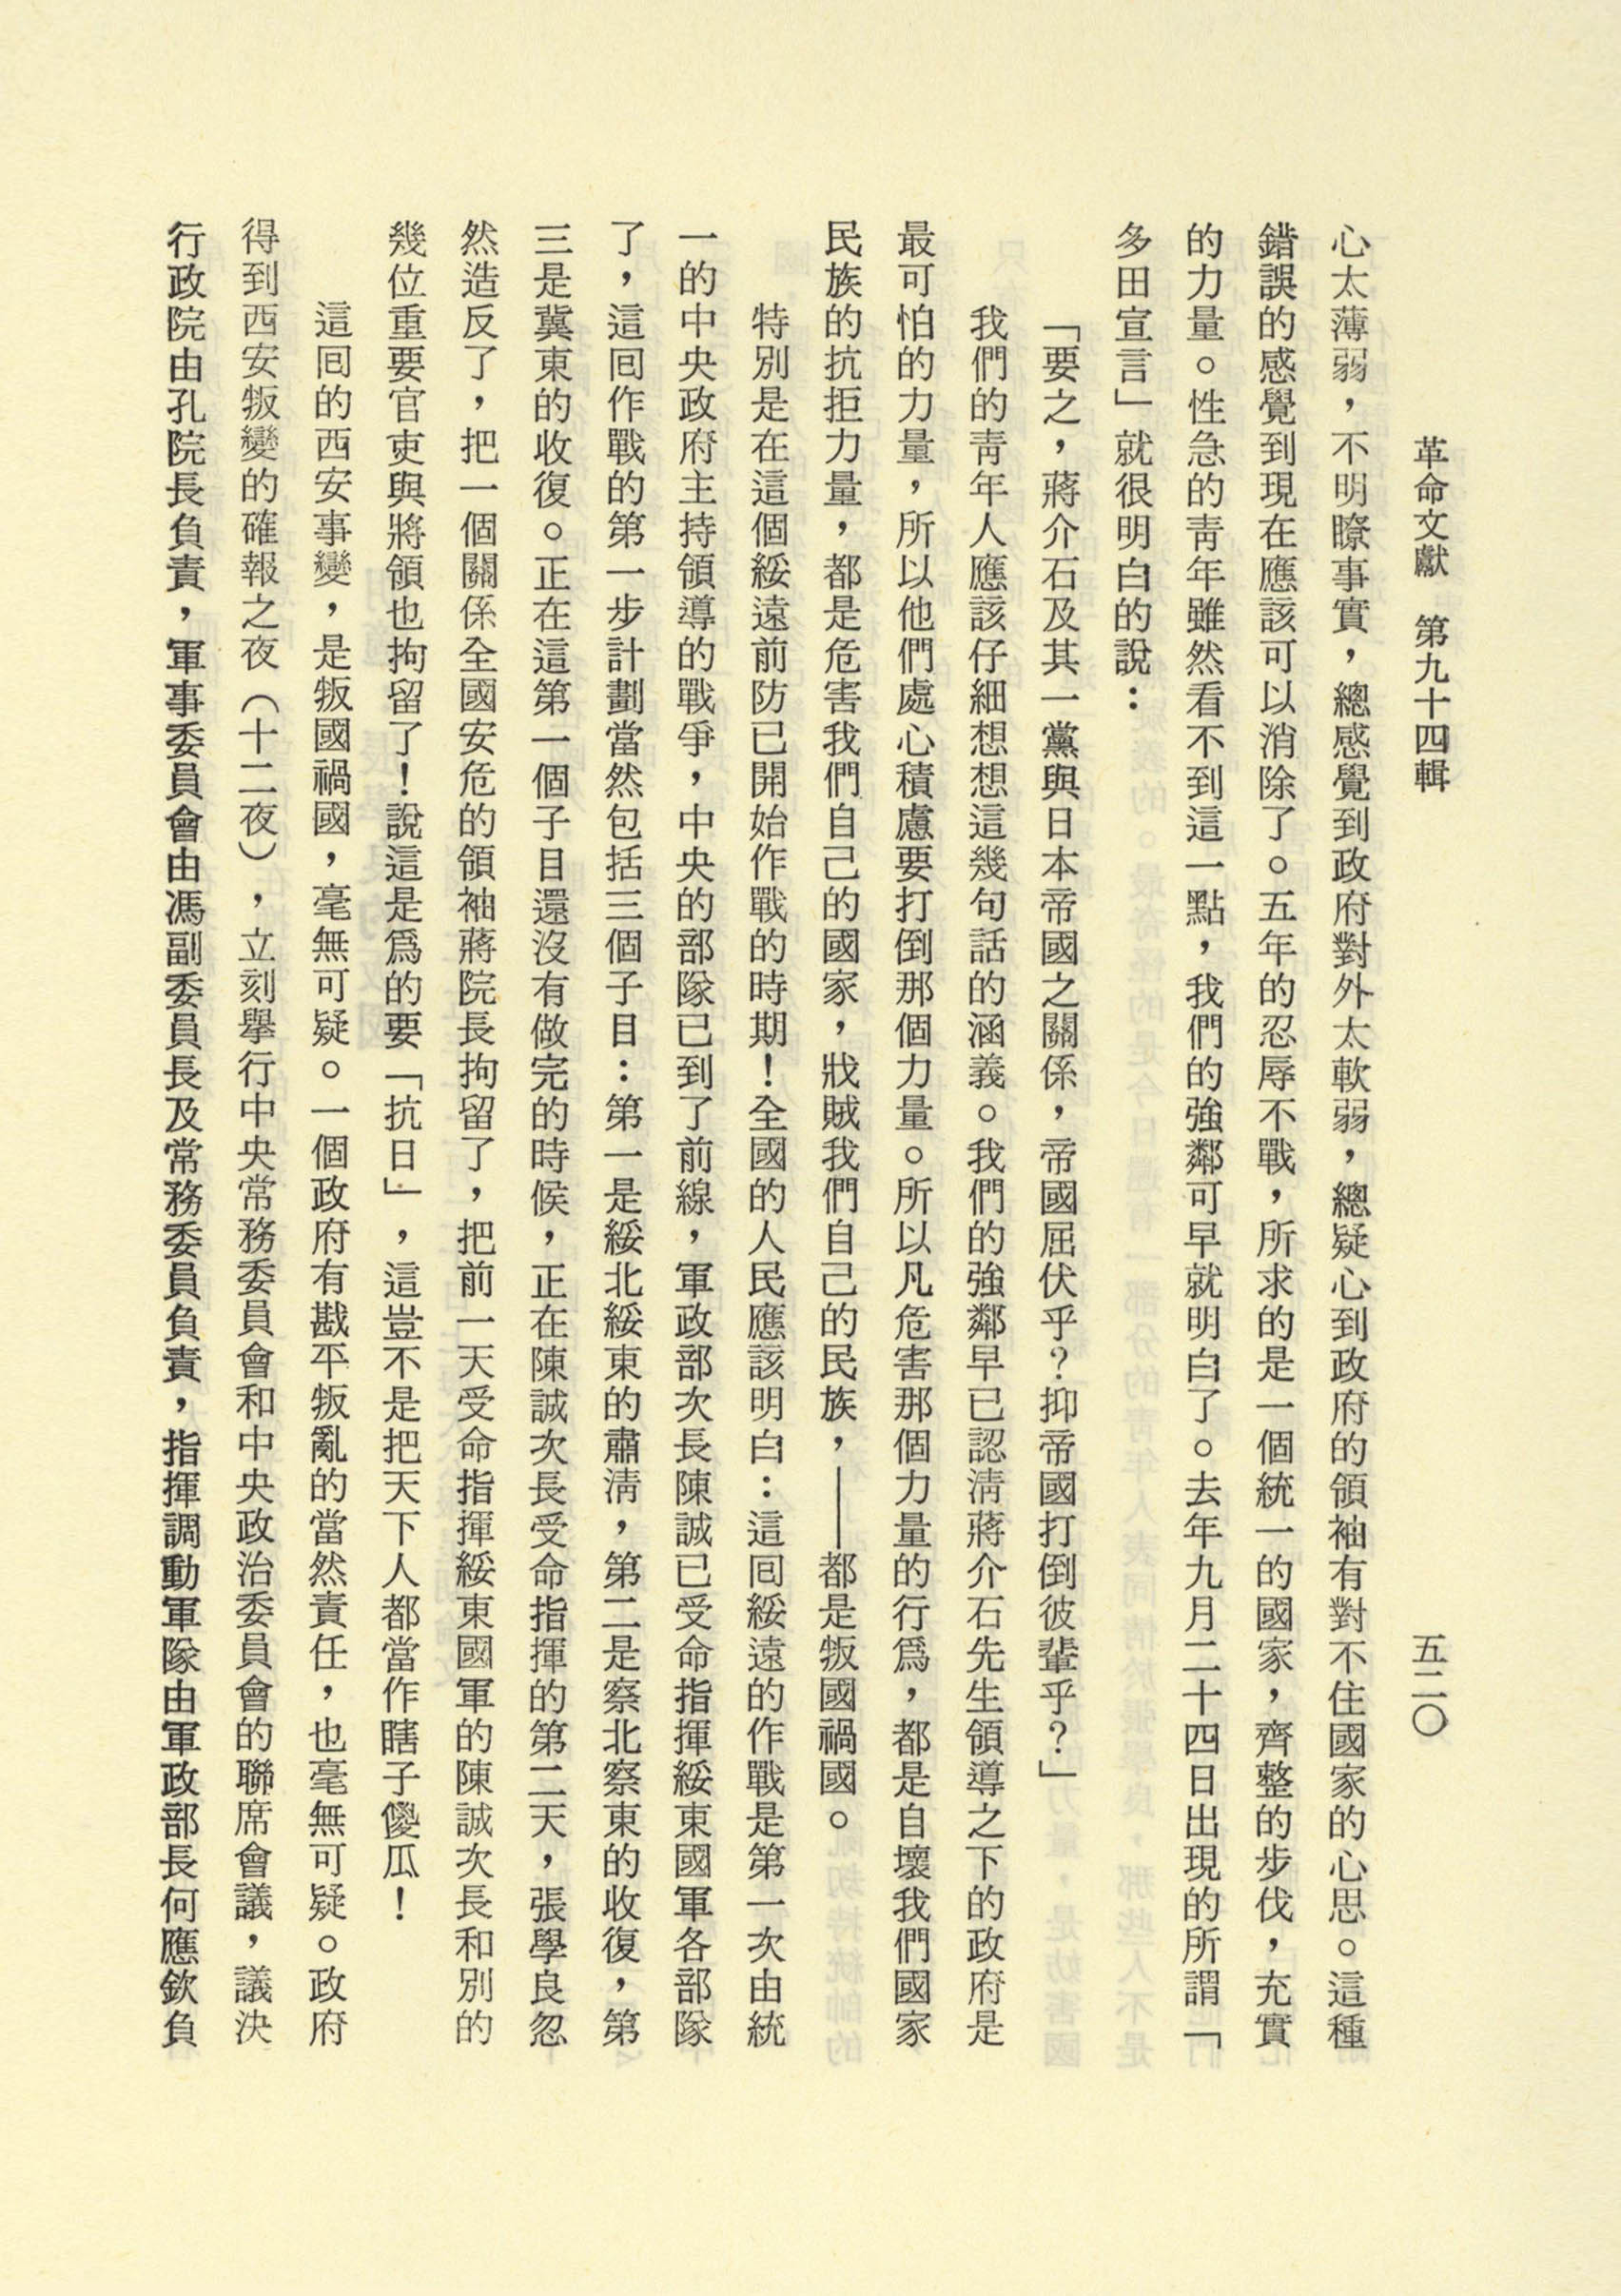 革命文獻　第九十四輯　五二〇
心太薄弱，不明瞭事實，總感覺到政府對外太軟弱，總疑心到政府的領袖有對不住國家的心思。這種
錯誤的感覺到現在應該可以消除了。五年的忍辱不戰，所求的是一個統一的國家，齊整的步伐，充實
的力量。性急的靑年雖然看不到這一點，我們的強鄰可早就明白了。去年九月二十四日出現的所謂「
多田宣言」就很明白的說：
「要之，蔣介石及其一黨與日本帝國之關係，帝國屈伏乎？抑帝國打倒彼輩乎？」
我們的靑年人應該仔細想想這幾句話的涵義。我們的強鄰早已認淸蔣介石先生領導之下的政府是
最可怕的力量，所以他們處心積慮要打倒那個力量。所以凡危害那個力量的行爲，都是自壞我們國家
民族的抗拒力量，都是危害我們自己的國家，戕賊我們自己的民族，——都是叛國禍國。
特別是在這個綏遠前防已開始作戰的時期！全國的人民應該明白：這囘綏遠的作戰是第一次由統
一的中央政府主持領導的戰爭，中央的部隊已到了前線，軍政部次長陳誠已受命指揮綏東國軍各部隊
了，這囘作戰的第一步計劃當然包括三個子目：第一是綏北綏東的肅淸，第二是察北察東的收復，第
三是冀東的收復。正在這第一個子目還沒有做完的時候，正在陳誠次長受命指揮的第二天，張學良忽
然造反了，把一個關係全國安危的領袖蔣院長拘留了，把前一天受命指揮綏東國軍的陳誠次長和別的
幾位重要官吏與將領也拘留了！說這是爲的要「抗日」，這豈不是把天下人都當作瞎子儍瓜！
這囘的西安事變，是叛國禍國，毫無可疑。一個政府有戡平叛亂的當然責任，也毫無可疑。政府
得到西安叛變的確報之夜（十二夜），立刻舉行中央常務委員會和中央政治委員會的聯席會議，議決
行政院由孔院長負責，軍事委員會由馮副委員長及常務委員負責，指揮調動軍隊由軍政部長何應欽負